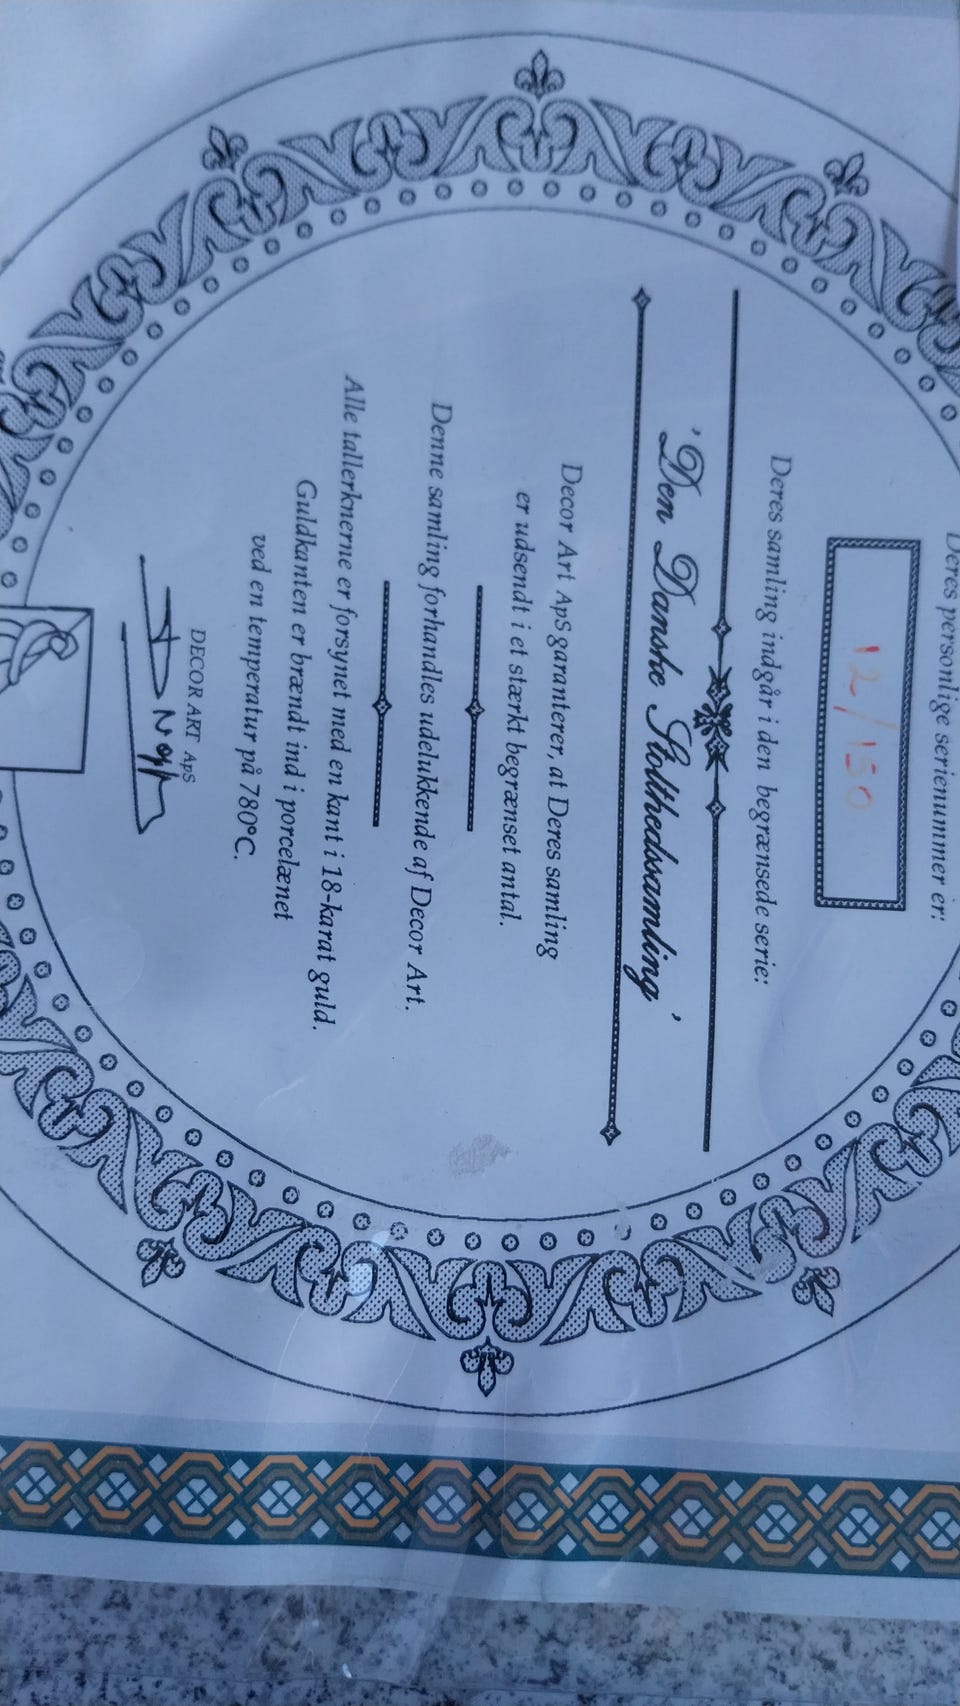 Deres personlige serienummer er:
12/150
Deres samling indgår i den begrænsede serie:
'Den Danske Stolthedssamling'
Decor Art ApS garanterer, at Deres samling
er udsendt i et stærkt begrænset antal.
Denne samling forhandles udelukkende af Decor Art.
Alle tallerknerne er forsynet med en kant i 18-karat guld.
Guldkanten er brændt ind i porcelænet
ved en temperatur på 780°C.
DECOR ART ApS